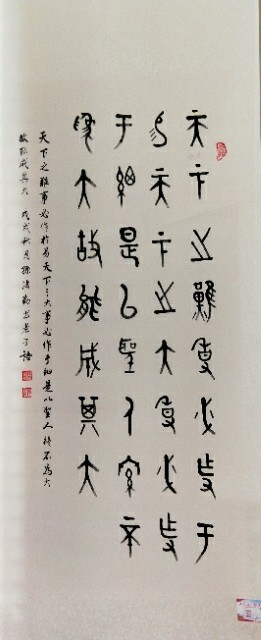 天下之難事必作于
易天下之大事必作
于細是以聖人終不
為大故能成其大
天下之難事必作於易天下之大事必作于細是以聖人終不為大
故能成其大 戊戌秋月 書老子語